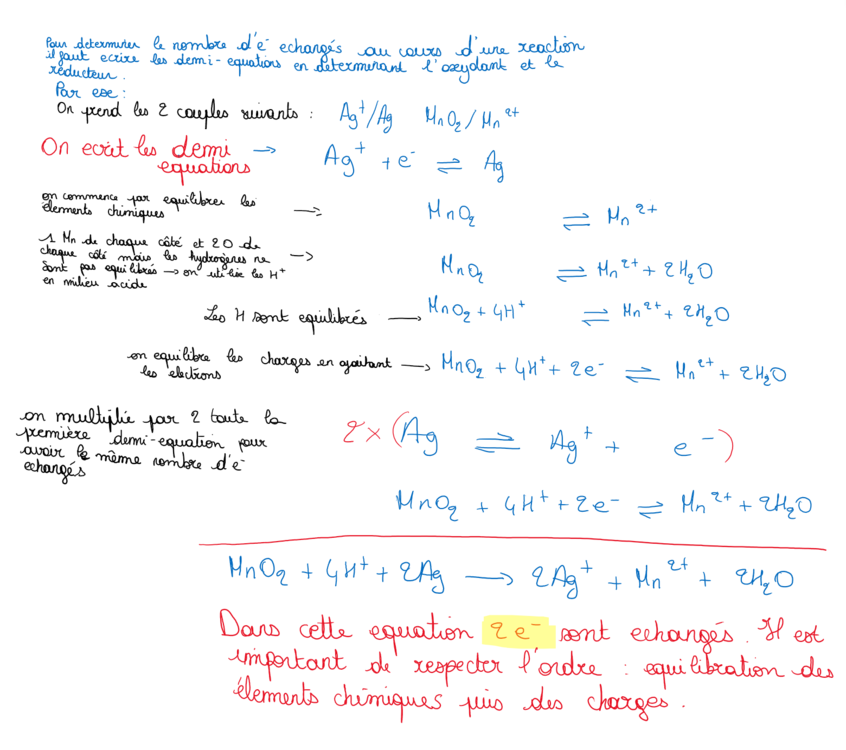 Pour determiner le nombre d'e⁻ echangés au cours d'une reaction
il faut ecrire les demi-equations en determinant l'oxydant et le
réducteur.
Par exe :
On prend les 2 couples suivants : Ag⁺/Ag MnO₂/Mn²⁺
On ecrit les demi equations → Ag⁺ + e⁻ ⇌ Ag
on commence par equilibrer les
élements chimiques → MnO₂ ⇌ Mn²⁺
1 Mn de chaque côté et 2O de
chaque côté mais les hydrogères ne
sont pas equilibrés → on utilise les H⁺
en milieu acide → MnO₂ ⇌ Mn²⁺ + 2H₂O
Les H sont equilibrés → MnO₂ + 4H⁺ ⇌ Mn²⁺ + 2H₂O
on equilibre les charges en ajoitant
les electrons → MnO₂ + 4H⁺ + 2e⁻ ⇌ Mn²⁺ + 2H₂O
on multiplie par 2 toute la
première demi-equation pour
avoir le même nombre d'e⁻
echangés
2 × (Ag ⇌ Ag⁺ + e⁻)
MnO₂ + 4H⁺ + 2e⁻ ⇌ Mn²⁺ + 2H₂O
MnO₂ + 4H⁺ + 2Ag → 2Ag⁺ + Mn²⁺ + 2H₂O
Dans cette equation 2e⁻ sont echangés. Il est
important de respecter l'ordre : equilibration des
élements chimiques puis des charges.